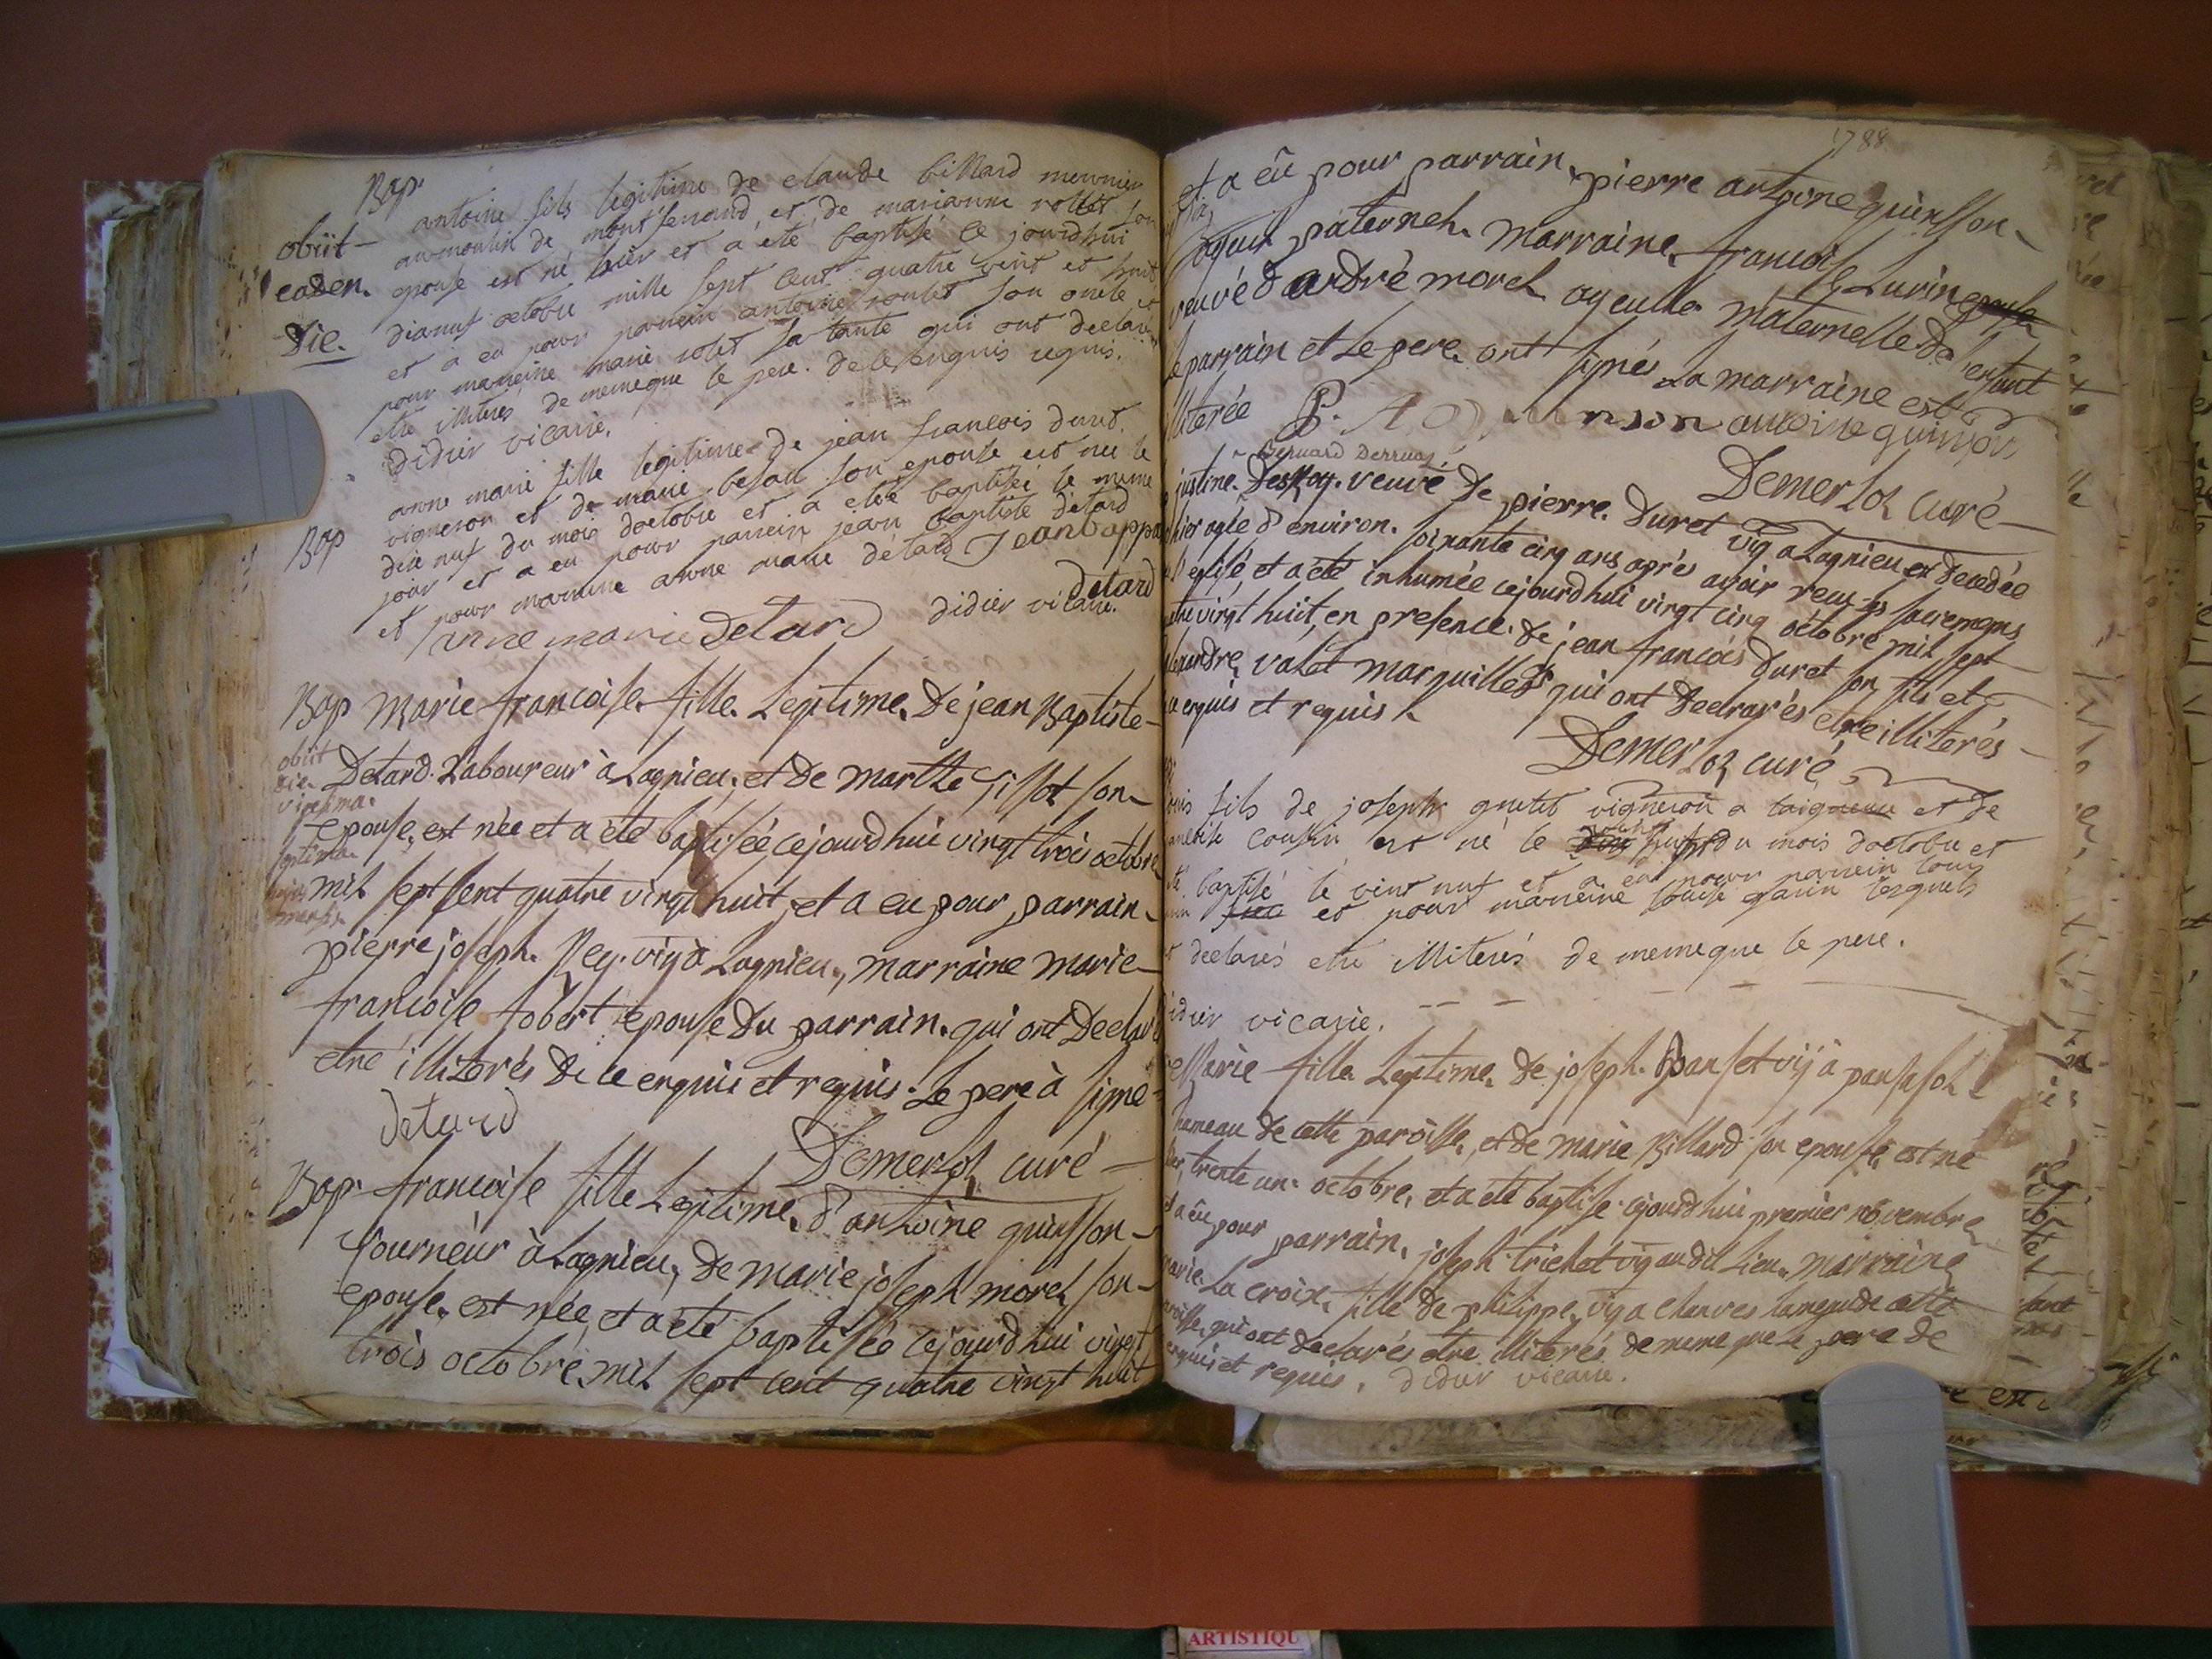 Bap.
antoine fils legitime de claude billard meunier
obiit
au moulin de montferrand, et de marianne rollet son
eadem
epouse est né hier et a été baptisé ce jourdhui
die.
dixneuf octobre mille sept cent quatre vint et huit
et a eu pour parrein antoine roulet son oncle et
pour marreine marie rolet sa tante qui ont declaré
etre illiterés de meme que le pere. de ce enquis requis.
didier vicaire.
Bap
anne marie fille legitime de jean francois duret
vigneron et de marie besan son epouse est née le
dix neuf du mois doctobre et a été baptisée le meme
jour et a eu pour parrein jean baptiste détard
et pour marreine anne marie détard Jean bap
detard
anne marie Detard didier vicaire.
Bap Marie francoise fille Legitime De jean Baptiste
obiit
die
Detard Laboureur à Lagnieu, et De marthe Gissot son
vigesima
epouse, est née et a été baptisée cejourdhui vingt trois octobre
septima
mil sept cent quatre vingt huit, et a eu pour parrain
pierre joseph Rey vig à Lagnieu, marraine marie
francoise fobert epouse Du parrain qui ont Declaré
etre illiterés De ce enquis et requis Le pere à signé
Detard
Demerloz curé
Bap. francoise fille Legitime, d'antoine quinsson
fourneur à Lagnieu, De marie joseph morel son
epouse. est née, et a été baptisée cejourdhui vingt
trois octobre mil sept cent quatre vingt huit
1788
et a eû pour parrain, pierre antoine quinsson
ayeul paternel. Marraine, francoise Lurin epouse
veuve d'andré morel ayeulle Maternelle De l'enfant
le parrain et Le pere ont signés La marraine est
illiterée P. A quinnson antoine quinson
Demerloz curé
justine veuve De pierre Duret vig a Lagnieu est Decedée
hier agée d'environ soixante cinq ans après avoir reçu les sacremens
l'eglise et a été inhumée cejourdhui vingt cinq octobre mil sept
vingt huit, en presence De jean francois Duret son fils et
alexandre valet marguilliers qui ont Declarés etre illiterés
enquis et requis
Demerloz curé
fils de joseph grutet vigneron a laignieu et de
cousin est né le vint huit du mois doctobre et
baptisé le vint neuf et a eu pour parrein
et pour marreine louise garin lesquels
declarés etre illiterés de meme que le pere.
didier vicaire.
Marie fille Legitime De joseph vig à pansasol
hameau De cette paroisse, et de marie Billard son epouse, est né
hier, trente un octobre, et a été baptisé cejourdhui premier novembre
et a eu pour parrain, joseph trichet vig audit Lieu. marraine
marie La croix, fille De philippe, vig a chanves hameau de cette
paroisse, qui ont declarés etre illiterés de meme que le pere de
enquis et requis. didier vicaire.
ARTISTIQU